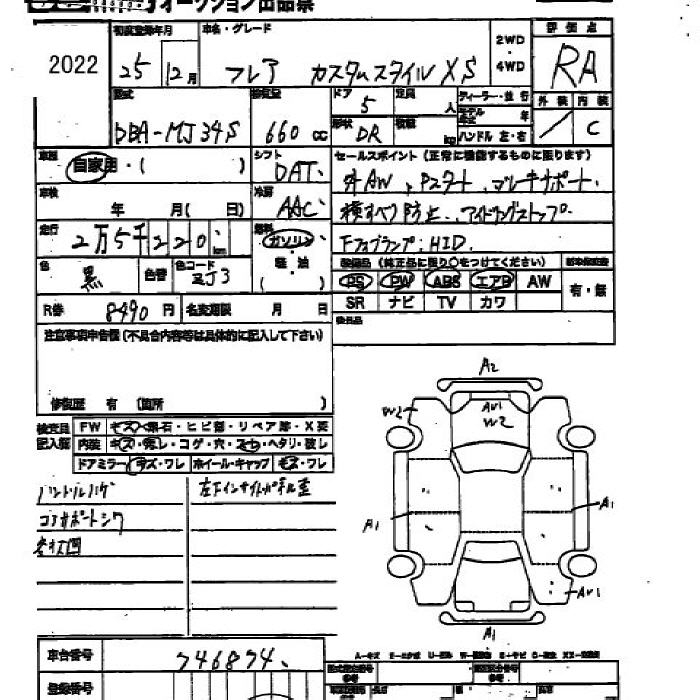 オークション出品票
2022
初度登録年月 25 12月
車名・グレード フレア カスタムスタイル XS
2WD・4WD
評価点 RA
型式 DBA-MJ34S
排気量 660 cc
ドア 5
定員 人
ディーラー・並行
形状 DR
積載 kg
モデル年式 年
ハンドル 左・右
外装 / 内装 C
車歴 自家用・( )
シフト DAT
セールスポイント(正常に機能するものに限ります)
車検 年 月( 日)
冷房 AAC
オAW、Pスタート、ブレーキサポート
走行 2万5千220 km
燃料 ガソリン 軽・油 ( )
横すべり防止、アイドリングストップ
Fフォグランプ・HID
色 黒 色替 色コード ZJ3
装備品(純正品に限り○をつけてください)
PS PW ABS エアB AW
有・無
SR ナビ TV カワ
R券 8490円 名変期限 月 日
注意事項申告欄(不具合内容等は具体的に記入して下さい)
修復歴 有(箇所 )
検査員記入欄
FW キズ・飛石・ヒビ割・リペア跡・X要
内装 キズ・汚レ・コゲ・穴・スレ・ヘタリ・破レ
ドアミラー キズ・ワレ ホイール・キャップ キズ・ワレ
ハンドルハゲ
コアサポートシワ
左下インサイドパネル歪
A2
W2
AW1
W2
A1
A1
AW1
A1
車台番号 746874
登録番号